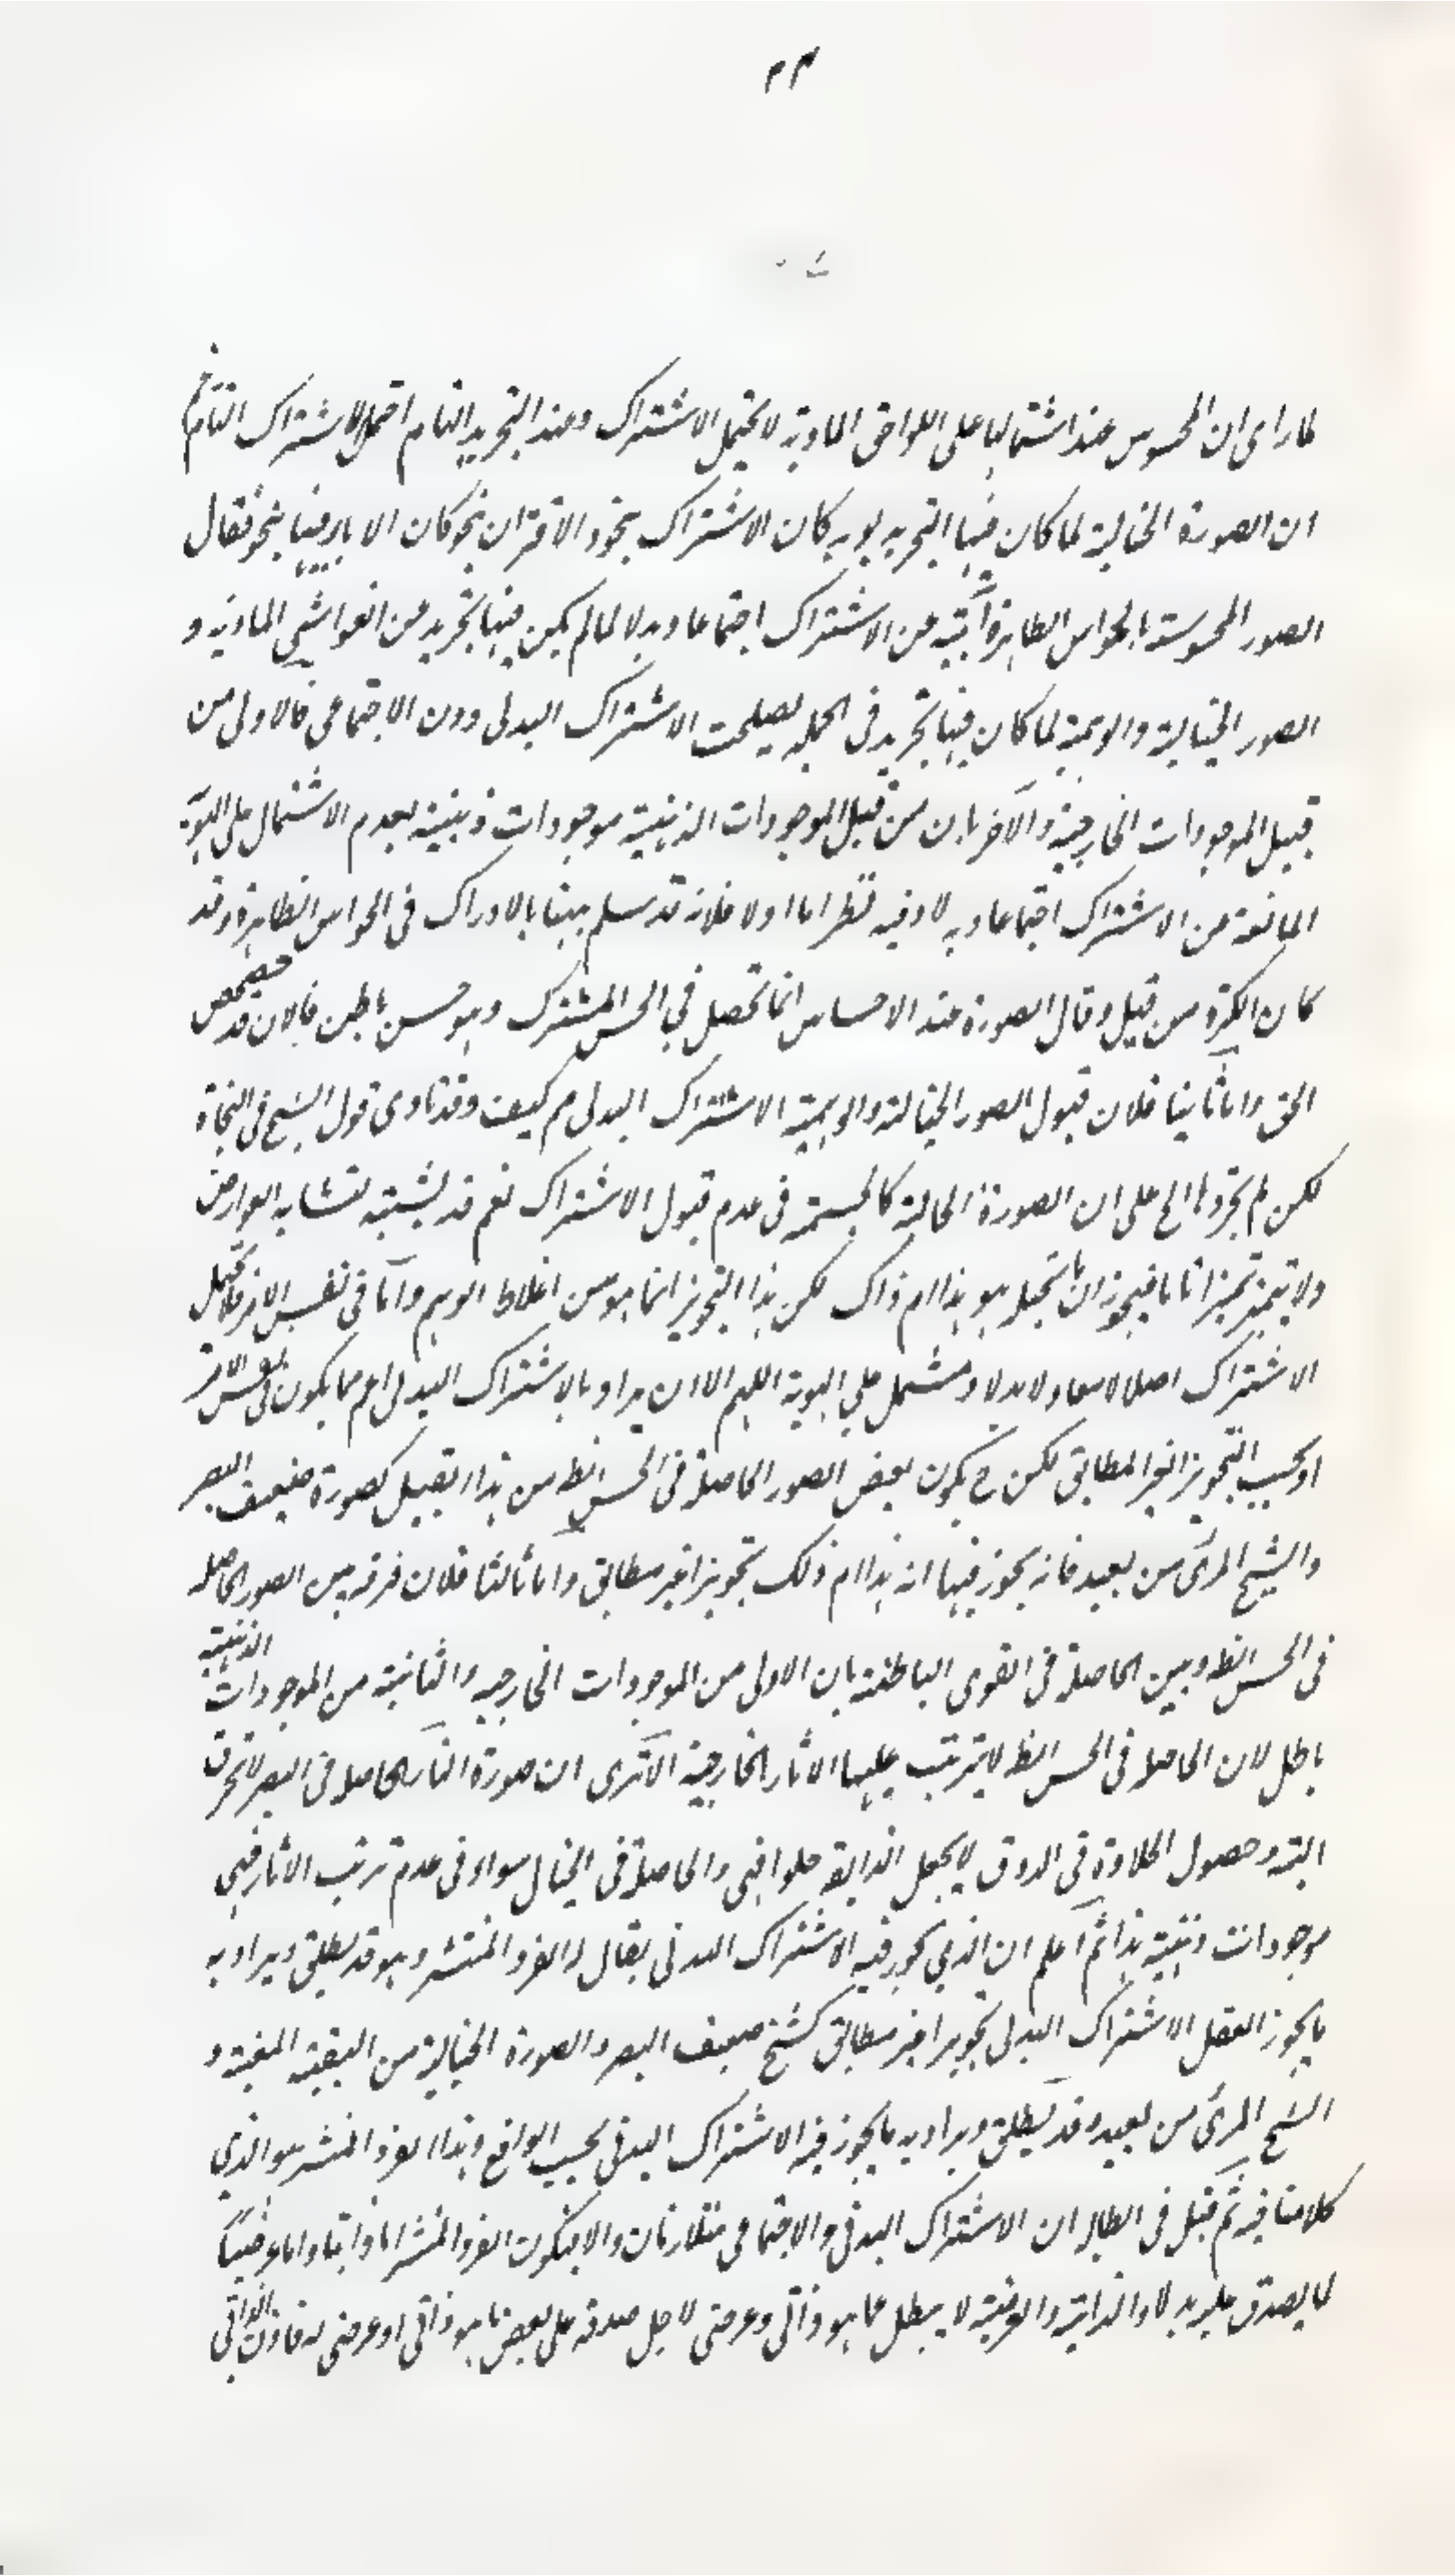 ٢٣
لما راى ان المحسوس عند اشتمالها على اللواحق المادية لا يحتمل الاشتراك وعند التجريد التام احتمل الاشتراك التام
ان الصورة الخيالية لما كان فيها التجريد بوجه كان الاشتراك بنحو والاقتران بنحو كان الاباء فيها بنحو فقال
الصور المحسوسة بالحواس الظاهرة آبية عن الاشتراك اجتماعا وبدلا لما لم يكن فيها تجريد عن الغواشي المادية و
الصور الخيالية والوهمية لما كان فيها تجريد في الجملة يصلحت الاشتراك البدلي دون الاجتماعي فالاول من
قبيل الموجودات الخارجية والآخريان من قبيل الموجودات الذهنية موجودات ذهنية لعدم الاشتمال على الهوية
المانعة عن الاشتراك اجتماعا وبدلا وفيه نظر اما اولا فلانه قد سلم ههنا بالادراك في الحواس الظاهرة وقد
كان انكره من قبل وقال الصورة عند الاحساس انما تحصل في الحس المشترك وهو حس باطن فالان قد حصحص
الحق واما ثانيا فلان قبول الصور الخيالية والوهمية الاشتراك البدلي مم كيف وقد نادى قول الشيخ في النجاة
لكن لم يجردها الخ على ان الصورة الخيالية كالجسمية في عدم قبول الاشتراك نعم قد يشتبه لتشابه العوارض
ولا يتميز تميزا تاما فيجوز ان ما تخيله هو هذا ام ذاك لكن هذا التجويز انما هو من اغلاط الوهم واما في نفس الامر فلا تحتمل
الاشتراك اصلا لا معا ولا بدلا ومشتمل على الهوية اللهم الا ان يراد بالاشتراك البدلي اعم مما يكون في نفس الامر
او بحسب التجويز الغير المطابق لكن ح يكون بعض الصور الحاصلة في الحس الظ من هذا القبيل كصورة ضعيف البصر
والشبح المرئي من بعيد فانه يجوز فيها انه هذا ام ذلك تجويزا غير مطابق واما ثالثا فلان فرقه بين الصور الحاصلة
في الحس الظ وبين الحاصلة في القوى الباطنة بان الاولى من الموجودات الخارجية والثانية من الموجودات الذهنية
باطل لان الحاصلة في الحس الظ لا يترتب عليها الاثار الخارجية الا ترى ان صورة النار الحاصلة في البصر لا تحرق
البتة وحصول الحلاوة في الذوق لا يجعل الذايقة حلوا فهي والحاصلة في الخيال سواء في عدم ترتب الاثار فهي
موجودات ذهنية هذا ثم اعلم ان الذي يجوز فيه الاشتراك البدلي يقال له الفرد المنتشر وهو قد يطلق ويراد به
ما يجوز العقل الاشتراك البدلي تجويزا غير مطابق كشبح ضعيف البصر والصورة الخيالية من البيضة المعينة و
الشبح المرئي من بعيد وقد يطلق ويراد به ما يجوز فيه الاشتراك البدلي بحسب الواقع وهذا الفرد المنتشر هو الذي
كلامنا فيه ثم قيل في ابطاله ان الاشتراك البدلي والاجتماعي متلازمان والا فيكون الفرد المنتشر اما ذاتيا واما عرضيا
لما يصدق عليه بدلا والذاتية والعرضية لا يبطل عما هو ذاتي وعرضي لاجل صدقه على بعض ما هو ذاتي او عرضي له فاذن الذاتي